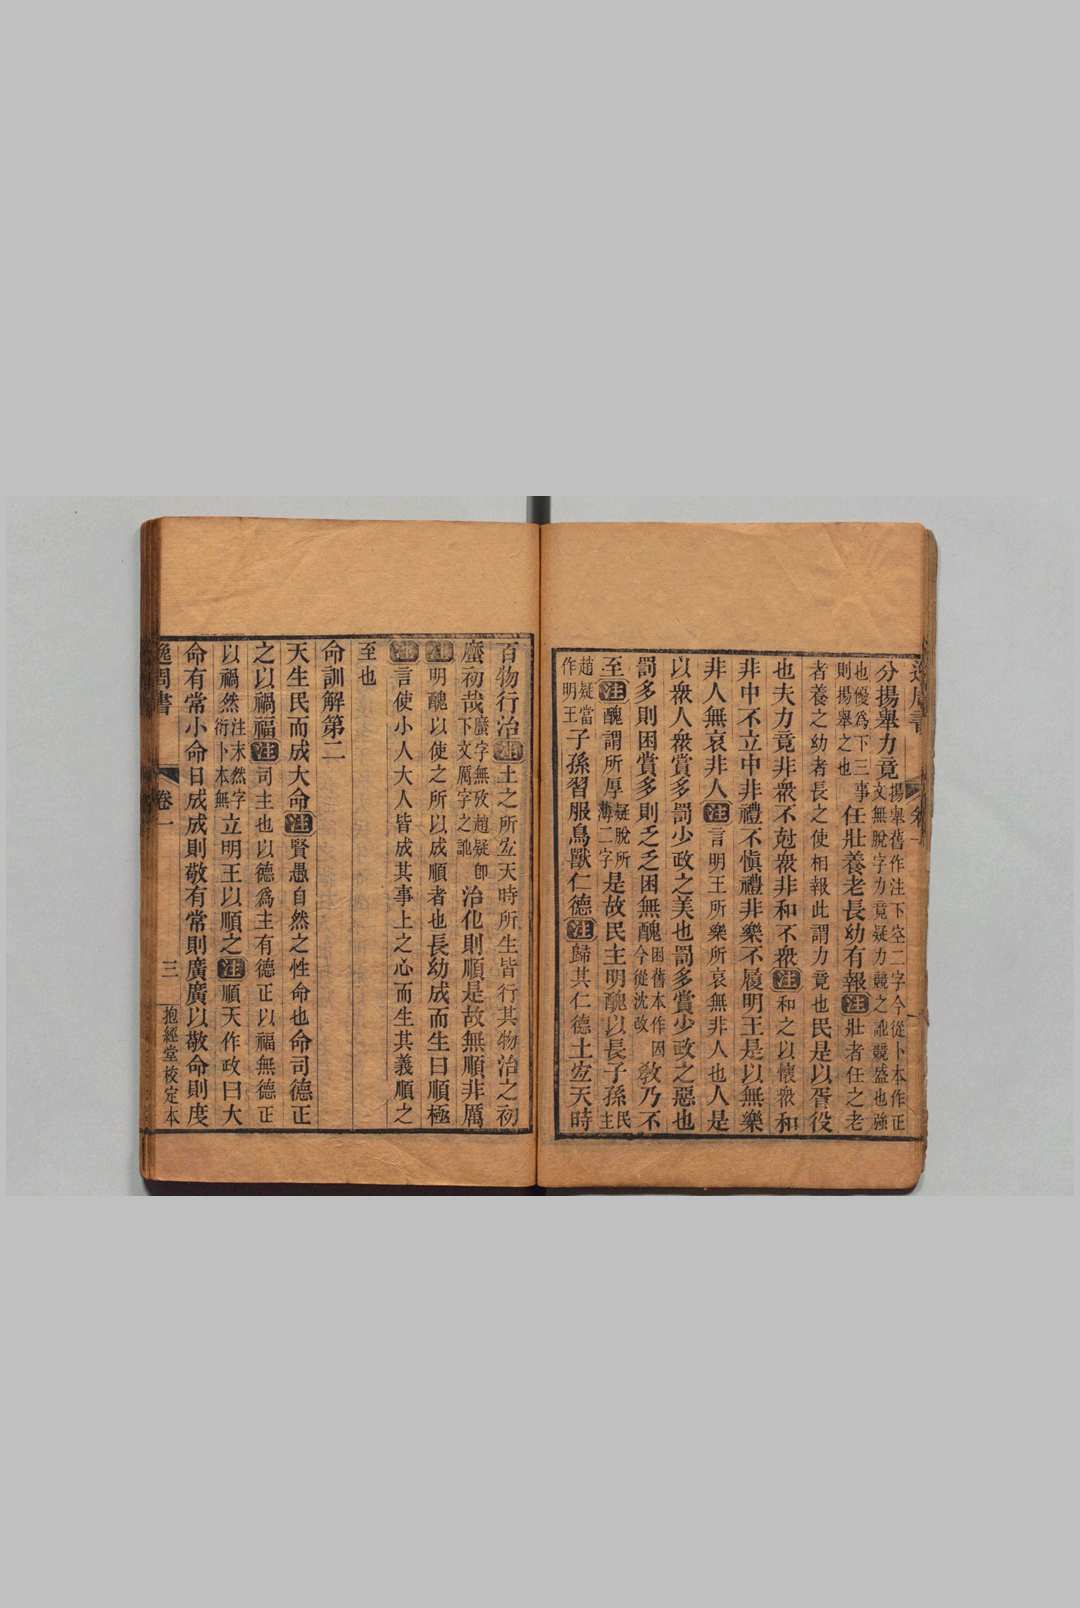 逸周書 卷一
分揚舉力竟揚舉舊作注下空二字今從卜本作正文無脫字力竟疑力競之譌競盛也強
也優爲下三事任壯養老長幼有報注壯者任之老
則揚舉之也
者養之幼者長之使相報此謂力竟也民是以胥役
也夫力竟非衆不尅衆非和不衆注和之以懷衆和
非中不立中非禮不愼禮非樂不履明王是以無樂
非人無哀非人注言明王所樂所哀無非人也人是
以衆人衆賞多罰少政之美也罰多賞少政之惡也
罰多則困賞多則乏乏困無醜困舊本作因今從沈改敎乃不
至注醜謂所厚疑脫所薄二字是故民主明醜以長子孫民主
趙疑當作明王子孫習服鳥獸仁德注歸其仁德土宐天時
百物行治注土之所宐天時所生皆行其物治之初
厲初哉厲字無攷趙疑卽下文厲字之譌治化則順是故無順非厲
注明醜以使之所以成順者也長幼成而生曰順極
注言使小人大人皆成其事上之心而生其義順之
至也
命訓解第二
天生民而成大命注賢愚自然之性命也命司德正
之以禍福注司主也以德爲主有德正以福無德正
以禍然注末然字衍卜本無立明王以順之注順天作政曰大
命有常小命日成成則敬有常則廣廣以敬命則度
逸周書 卷一 三 抱經堂校定本